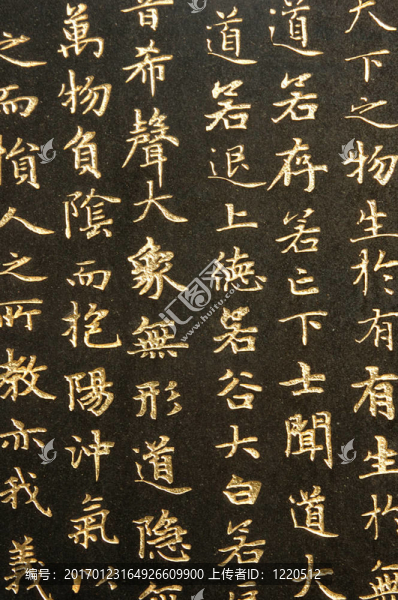 天下之物生於有有生於無
道若存若亡下士聞道大
道若退上德若谷大白若
音希聲大象無形道隱無
萬物負陰而抱陽沖氣以
之而損人之所教亦我義
www.huitu.com
编号:20170123164926609900 上传者ID:1220512